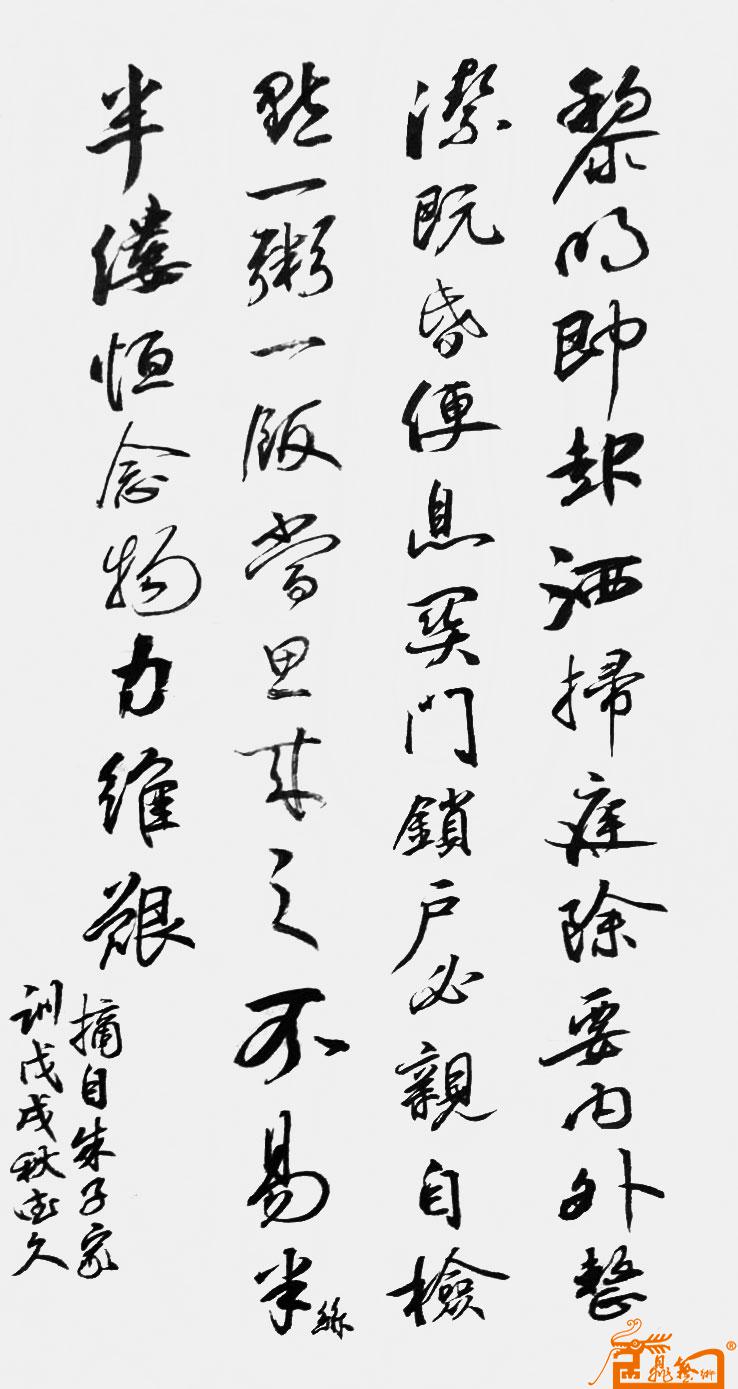 黎明即起洒掃庭除要内外整
潔既昏便息関門鎖户必親自檢
點一粥一飯當思来之不易半絲
半縷恒念物力維艱
摘自朱子家
訓戊戌秋久